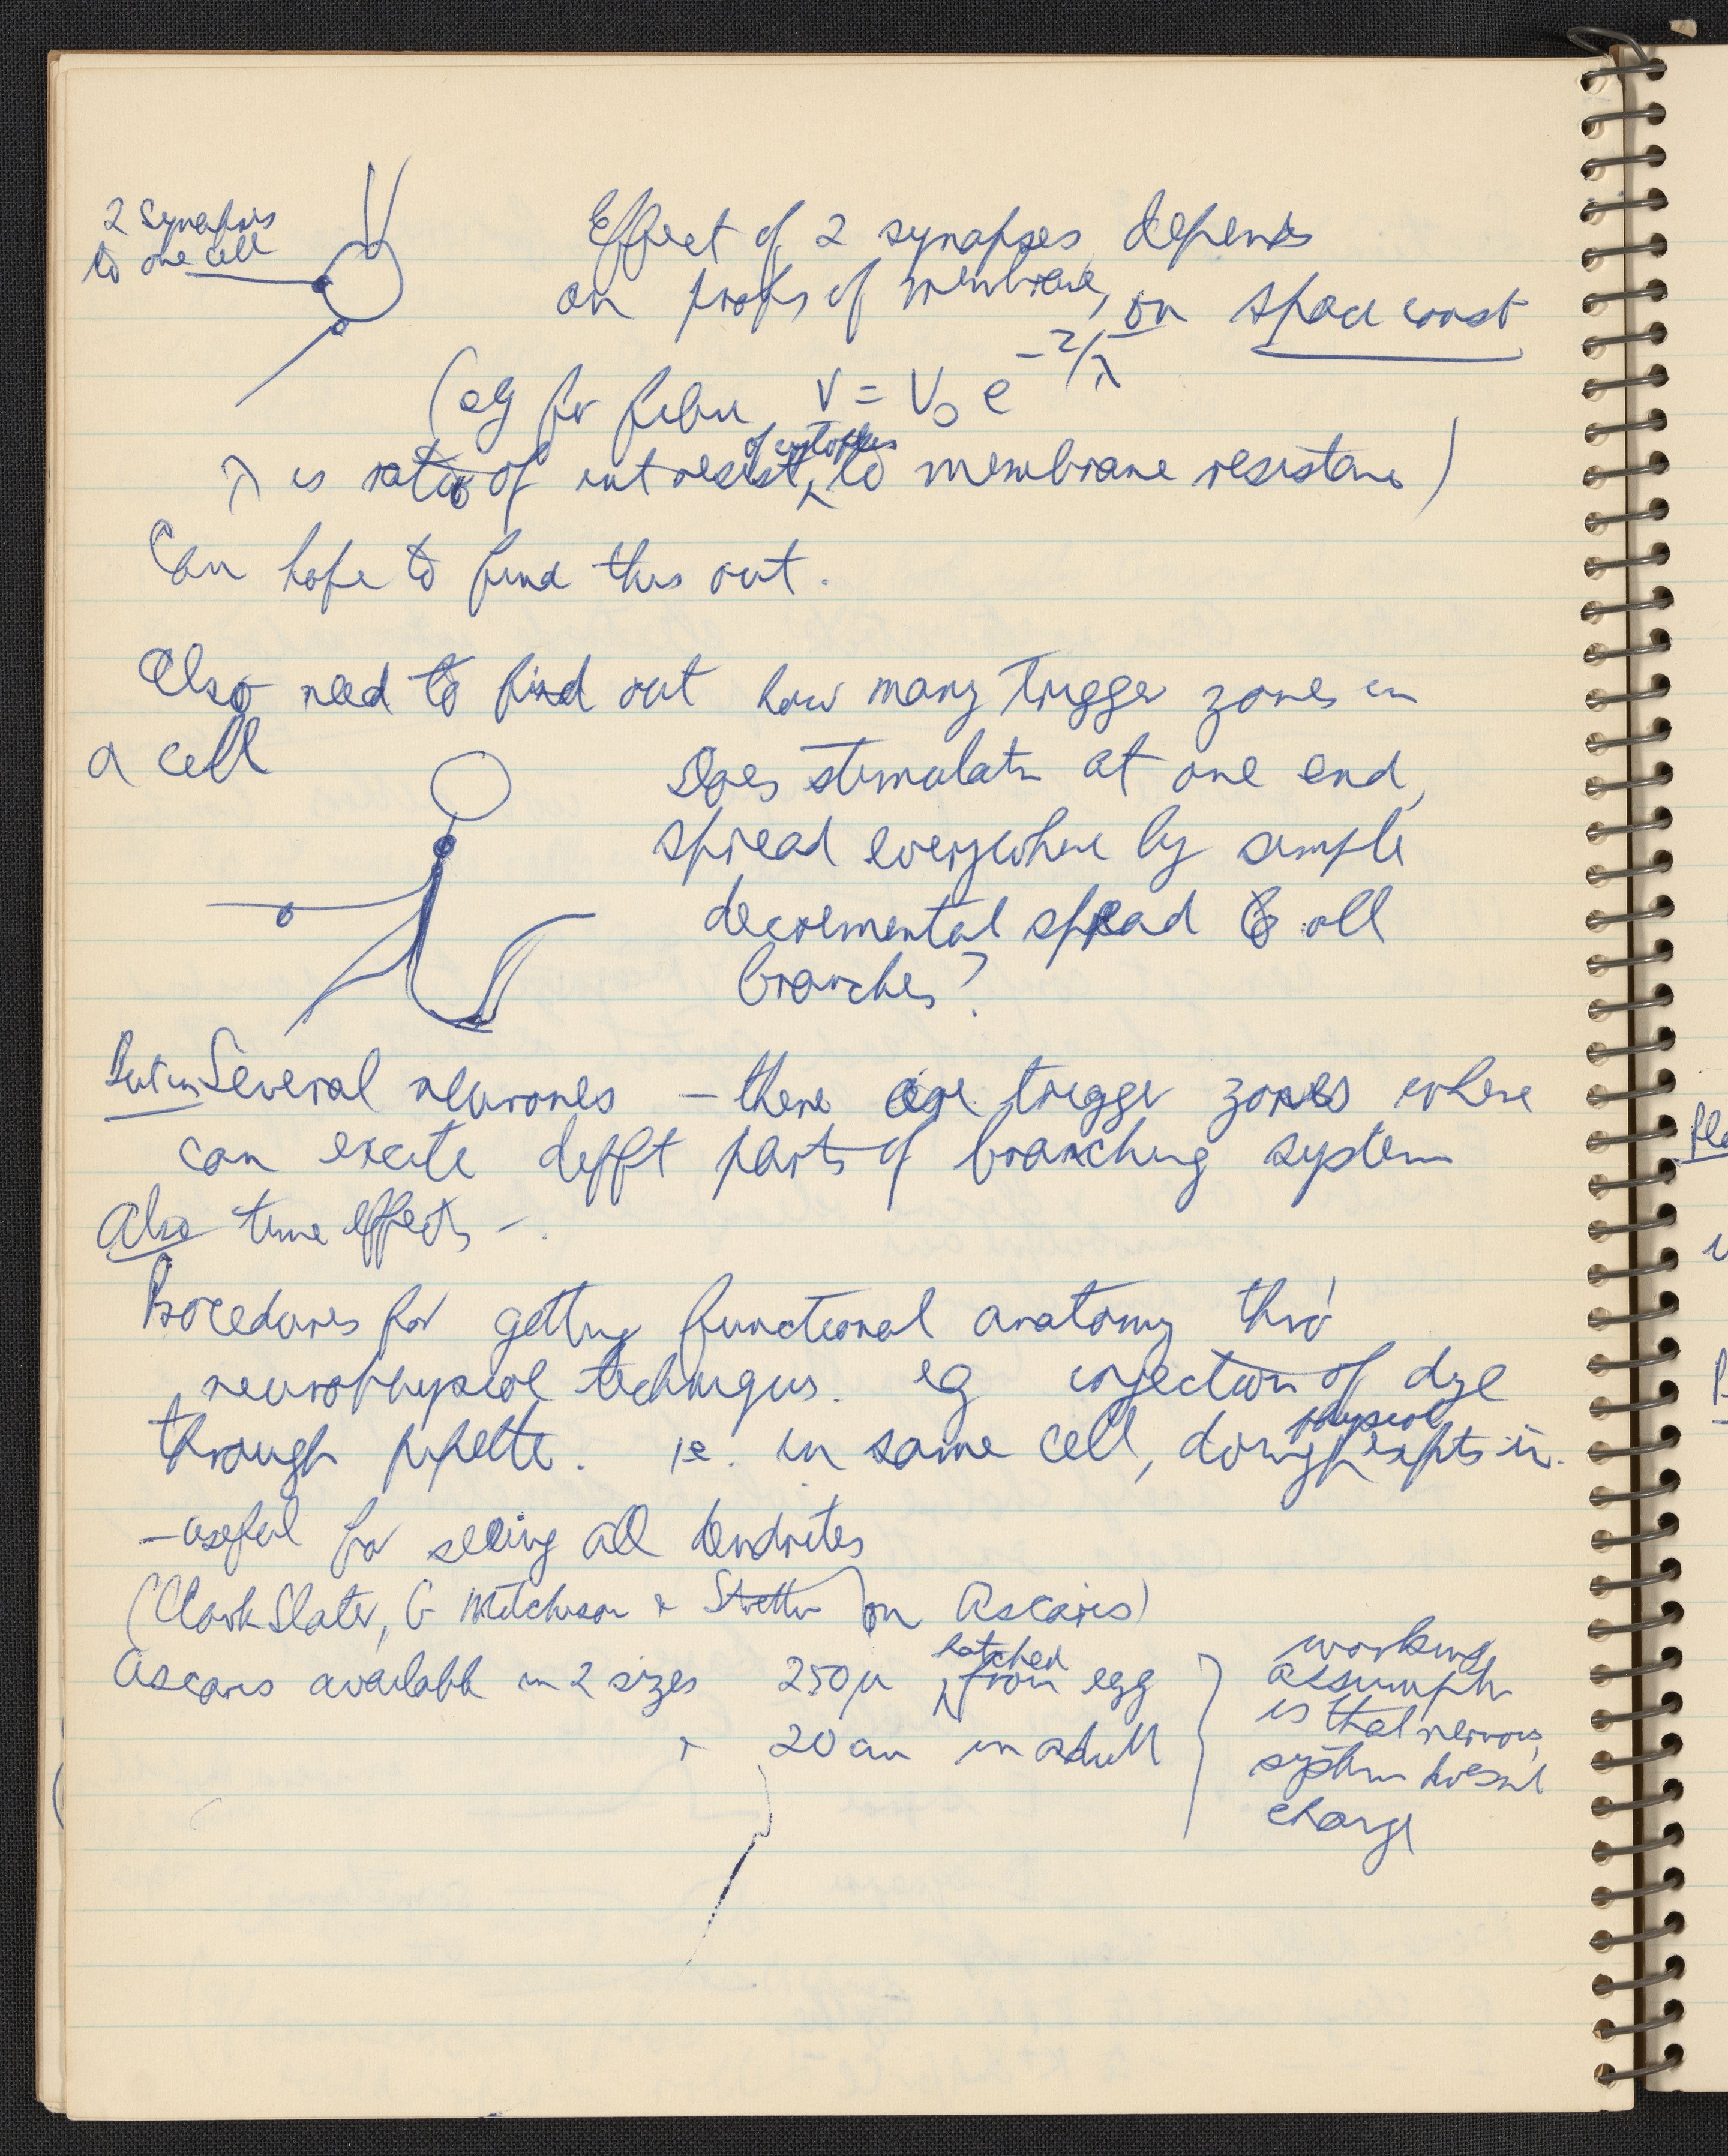 2 Synapsis
to one cell
Effect of 2 synapses depends
on props of membrane, on space const
(eg for fibre V = V0 e -2/λ
of cytoplas
λ is ratio of int resist, to membrane resistans)
Can hope to find this out.
Also need to find out how many trigger zones in
a cell
Does stimulatn at one end,
spread everywhere by simple
decremental spread to all
branches?
But in Several neurones - there are trigger zones where
can excite diffft parts of branching system
Also time effects -
Procedures for getting functional anatomy thro'
neurophysiol techniques. eg injection of dye
physiol
through pipette. ie. in same cell, doing expts in.
- useful for seeing all dendrites
(Clark Slater, G Mitchison & Stretton on Ascaris)
Ascaris available in 2 sizes 250μ hatched from egg
& 20 cm in adult
working
assumptn
is that nervous
system doesnt
change